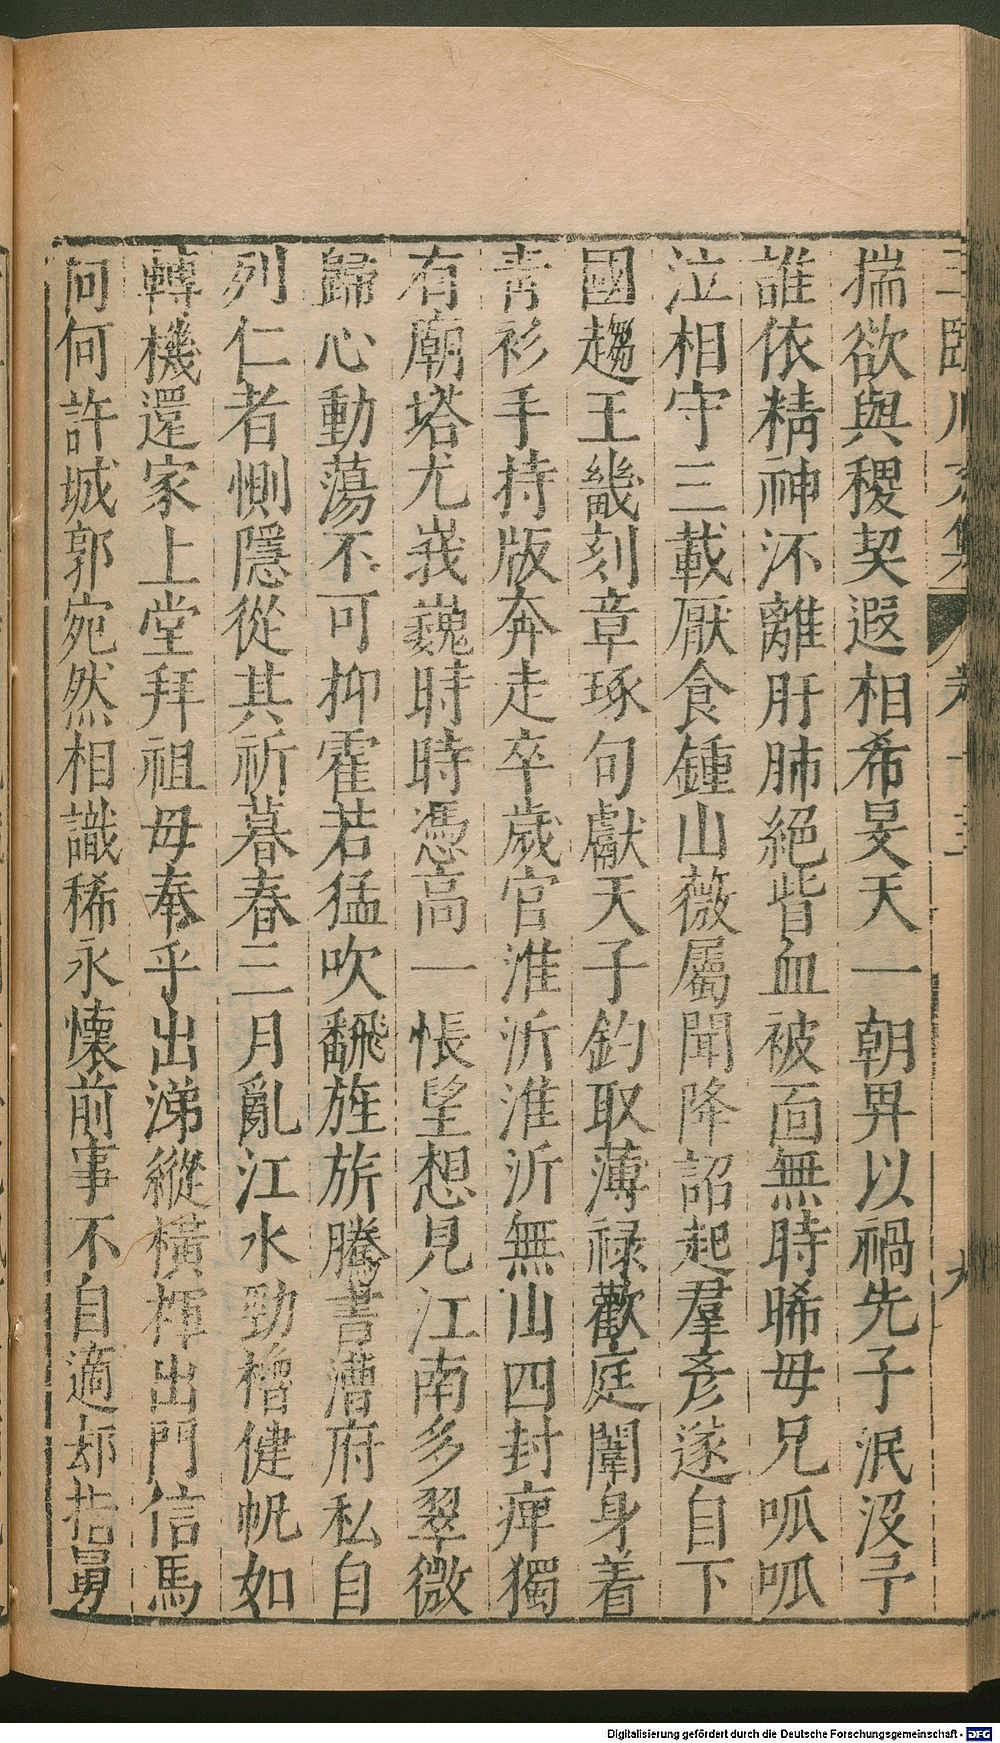 揣欲與稷契遐相希旻天一朝畀以禍先子泯沒予
誰依精神泝離肝肺絕眥血被面無時晞毋兄呱呱
泣相守三載厭食鍾山薇屬聞降詔起羣彥遂自下
國趨王畿刻章琢句獻天子釣取薄禄歡庭闈身着
青衫手持版奔走卒歲官淮沂淮沂無山四封庳獨
有廟塔尤峩巍時時憑高一悵望想見江南多翠微
歸心動蕩不可抑霍若猛吹飜旌旂騰書漕府私自
列仁者惻隱從其祈暮春三月亂江水勁櫓健帆如
轉機還家上堂拜祖毋奉乎出涕縱橫揮出門信馬
向何許城郭宛然相識稀永懷前事不自適却指舅
Digitalisierung gefördert durch die Deutsche Forschungsgemeinschaft - DFG